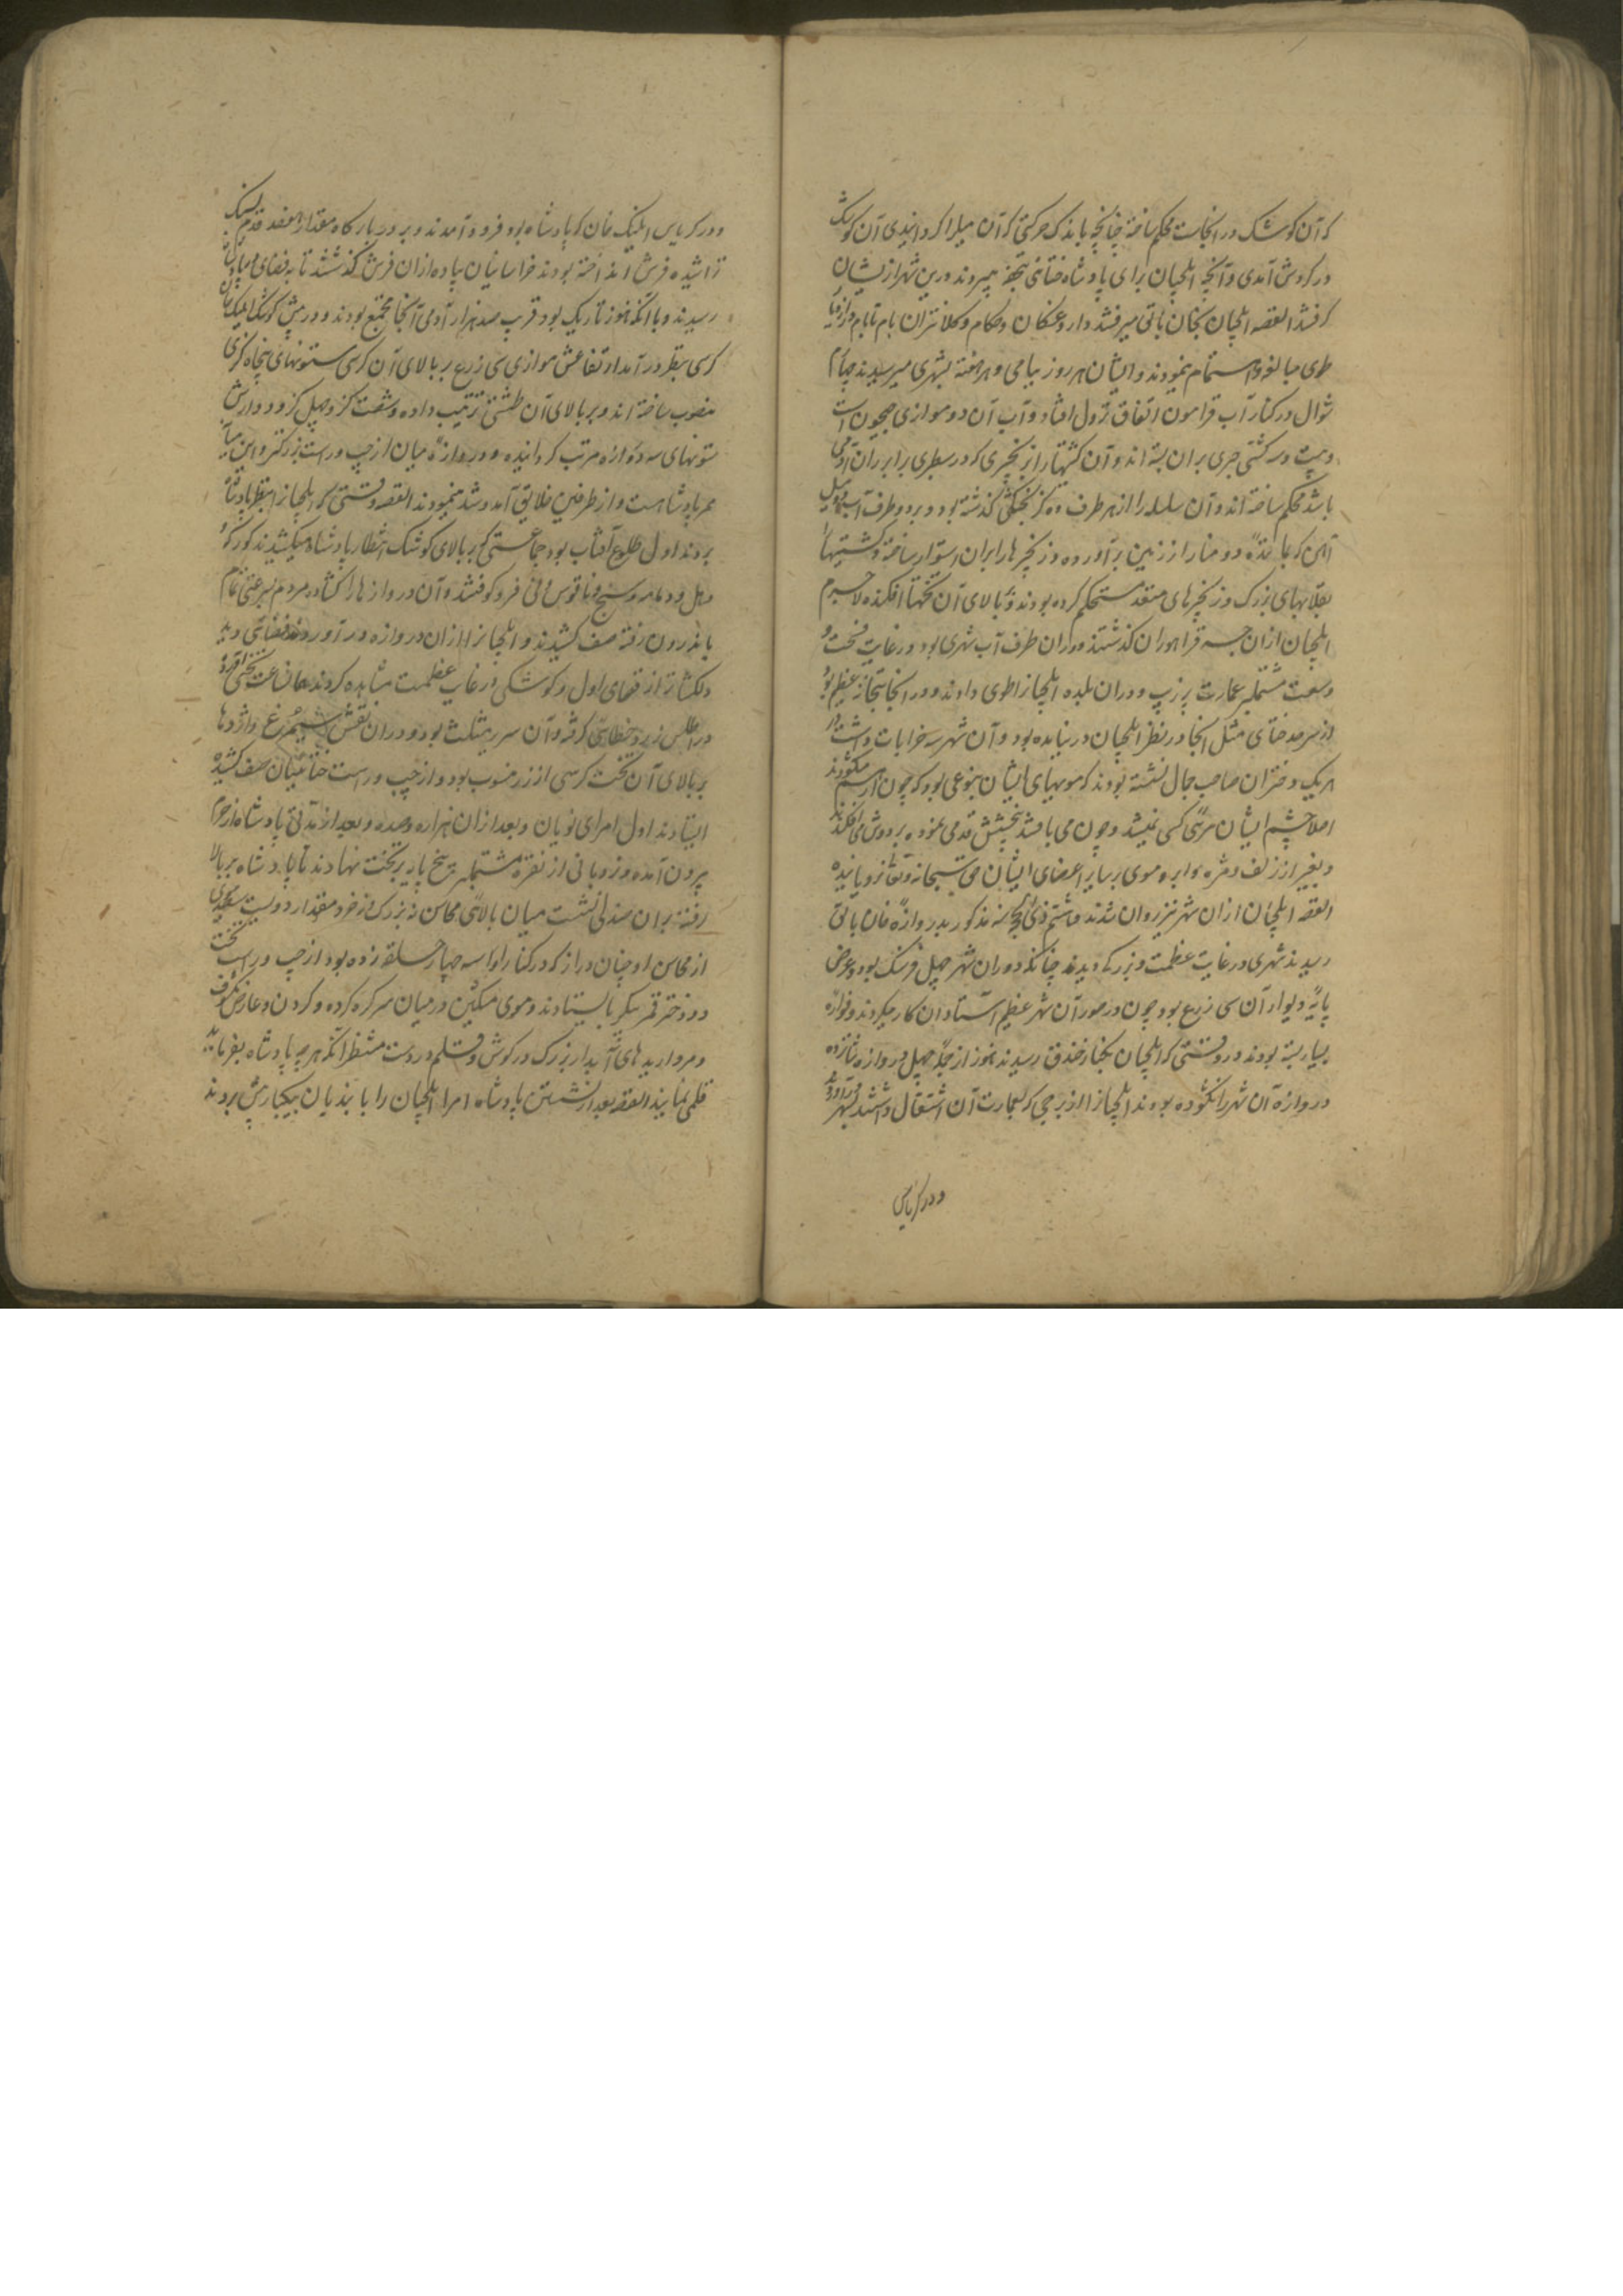 که آن کوشک در انجاست محکم ساخته چنانچه باندک حرکتی که آن میل را کردانیدی آن کوشک
در کردش آمدی و آنچه ایلچیان برای پادشاه ختای تحفه میبردند درین شهر از ایشان
کرفتند القصه ایلچیان بخان بالق میرفتند و داروغکان و حکام و کلانتران بام تا بام در
طوی مبالغه و اهتمام مینمودند و ایشان هر روز بیامی و هر هفته بشهری میرسیدند چهارم
شوال در کنار آب قرامون اتفاق نزول افتاد و آب آن رود موازی جیحون است
و بیست و سه کشتی جسری بران بسته اند و آن کشتیها را بزنجیری که در سطبری برابر ران آدمی
باشد محکم ساخته اند و آن سلسله را از هر طرف ده کز بخشکی کذشته بود و بر دو طرف آب دو میل
آهن که دو منار از زمین برآورده و زنجیرها را بران استوار ساخته و کشتیها را
بقلابهای بزرک و زنجیرهای متعدد مستحکم کرده بودند و بالای آن تختها افکنده لاجرم
ایلچیان ازان جسر قراموران کذشتند و دران طرف آب شهری بود در غایت فسحت و
وسعت مشتمل بر عمارت پر زیب و دران بلده ایلچیانرا طوی دادند و در انجا بتخانه عظیم بود
از سرحد ختای مثل انجا در نظر ایلچیان در نیامده بود و آن شهر سه خرابات داشت در
هریک دختران صاحب جمال نشسته بودند که مویهای ایشان بنوعی بود که چون از هم میکشودند
اصلا چشم ایشان مرئی کسی نمیشد و چون می بافتند بخشش قدمی نموده بر دوش می افکندند
و بغیر از زلف و مژه و ابرو موی بر سایر اعضای ایشان حق سبحانه و تعالی نرویانیده
القصه ایلچیان ازان شهر نیز روان شدند هشتم ذی الحجه سنه مذکور بدروازه خان بالق
رسیدند شهری در غایت عظمت و بزرکی دیدند چنانکه دوران شهر چهل فرسنک بود و عرض
پایه دیوار آن سی زرع بود چون در سور آن شهر عظیم استادان کار میکردند و خوازه
بسیار بسته بودند در وقتی که ایلچیان بکنار خندق رسیدند هنوز از جمله چهل دروازه شانزده
دروازه آن شهر را نکشوده بودند ایلچیانرا از برجی که بعمارت آن اشتغال داشتند بشهر درآوردند
و در کریاس
و در کریاس ایلیک خان که پادشاه بود فرود آمدند و بر در بارکاه مقدار هفتصد قدم سنک
تراشیده فرش انداخته بودند خراسانیان پیاده ازان فرش کذشتند تا به فضای
رسیدند و با آنکه هنوز تاریک بود قریب صد هزار آدمی آنجا مجتمع بودند و در پیش کوشک ایلیک خان
کرسی بنظر در آمد ارتفاعش موازی سی زرع بر بالای آن کرسی ستونهای پنجاه کزی
منصوب ساخته اند و بر بالای آن طنبی ترتیب داده و شصت کز و چهل کز و در اطراف
ستونهای سه دروازه مرتب کردانیده و دروازه میان از چپ و راست بزرکتر و این میان
ممر پادشاهست و از طرفین خلایق آمد و شد مینمودند القصه وقتی که ایلچیانرا بنظر پادشاه
بردند اول طلوع آفتاب بود جماعتی که بر بالای کوشک انتظار پادشاه میکشیدند کورکه و
دهل و دمامه و سنج و ناقوس و نی فرو کوفتند و آن دروازها را کشاده مردم بسرعتی تمام
باندرون رفته صف کشیدند و ایلچیانرا ازان دروازه در آوردند فضائی دید
دلکشاتر از فضای اول و کوشکی در غایت عظمت مشاهده کردند همان ساعت تختی آورده
در اطلس زرد خطایی کرفته و آن سریر مثلث بود و دران نقش سیمرغ و اژدرها
بر بالای آن تخت کرسی از زر منصوب بود و از چپ و راست ختائیان صف کشیده
ایستادند اول امرای تومان و بعد ازان هزاره و صده و بعد از مدتی پادشاه از حرم
بیرون آمده و نردبانی از نقره مشتمل بر پنج پایه بر تخت نهادند تا پادشاه بر بالا
رفته بران صندلی نشست میان بالائی محاسن نه بزرک و نه خرد مقدار دویست سیصد موی
از محاسن او چنان دراز که در کنار او سه چهار حلقه زده بود از چپ و راست تخت
دو دختر قمر پیکر بایستادند و موی مشکین در میان سر کره کرده و کردن و عارض مکشوف
و مرواریدهای آبدار بزرک در کوش و قلم در دست منتظر آنکه هر چه پادشاه بفرماید
قلمی نمایند القصه بعد از نشستن پادشاه امرا ایلچیان را با بندیان بیکبار پیش بردند